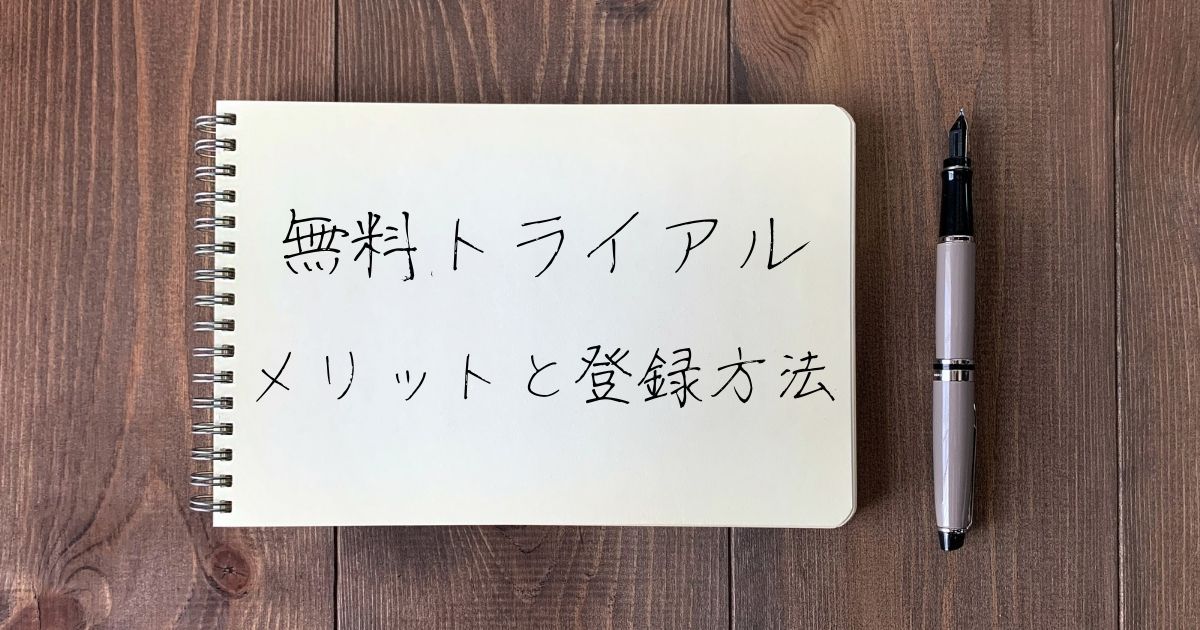 無料トライアル
メリットと登録方法